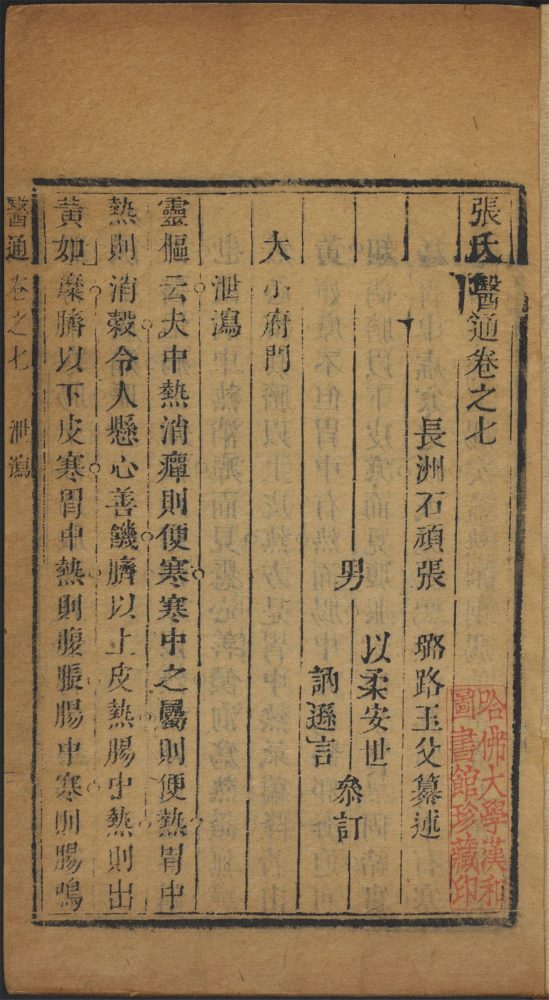 張氏醫通卷之七
長洲石頑張 璐路玉父纂述
男 以柔安世
訥遜言 參訂
大小府門
泄瀉
靈樞云夫中熱消癉則便寒寒中之屬則便熱胃中
熱則消穀令人懸心善饑臍以上皮熱腸中熱則出
黃如糜臍以下皮寒胃中寒則腹脹腸中寒則腸鳴
醫通 卷之七 泄瀉
哈佛大學漢和
圖書館珍藏印